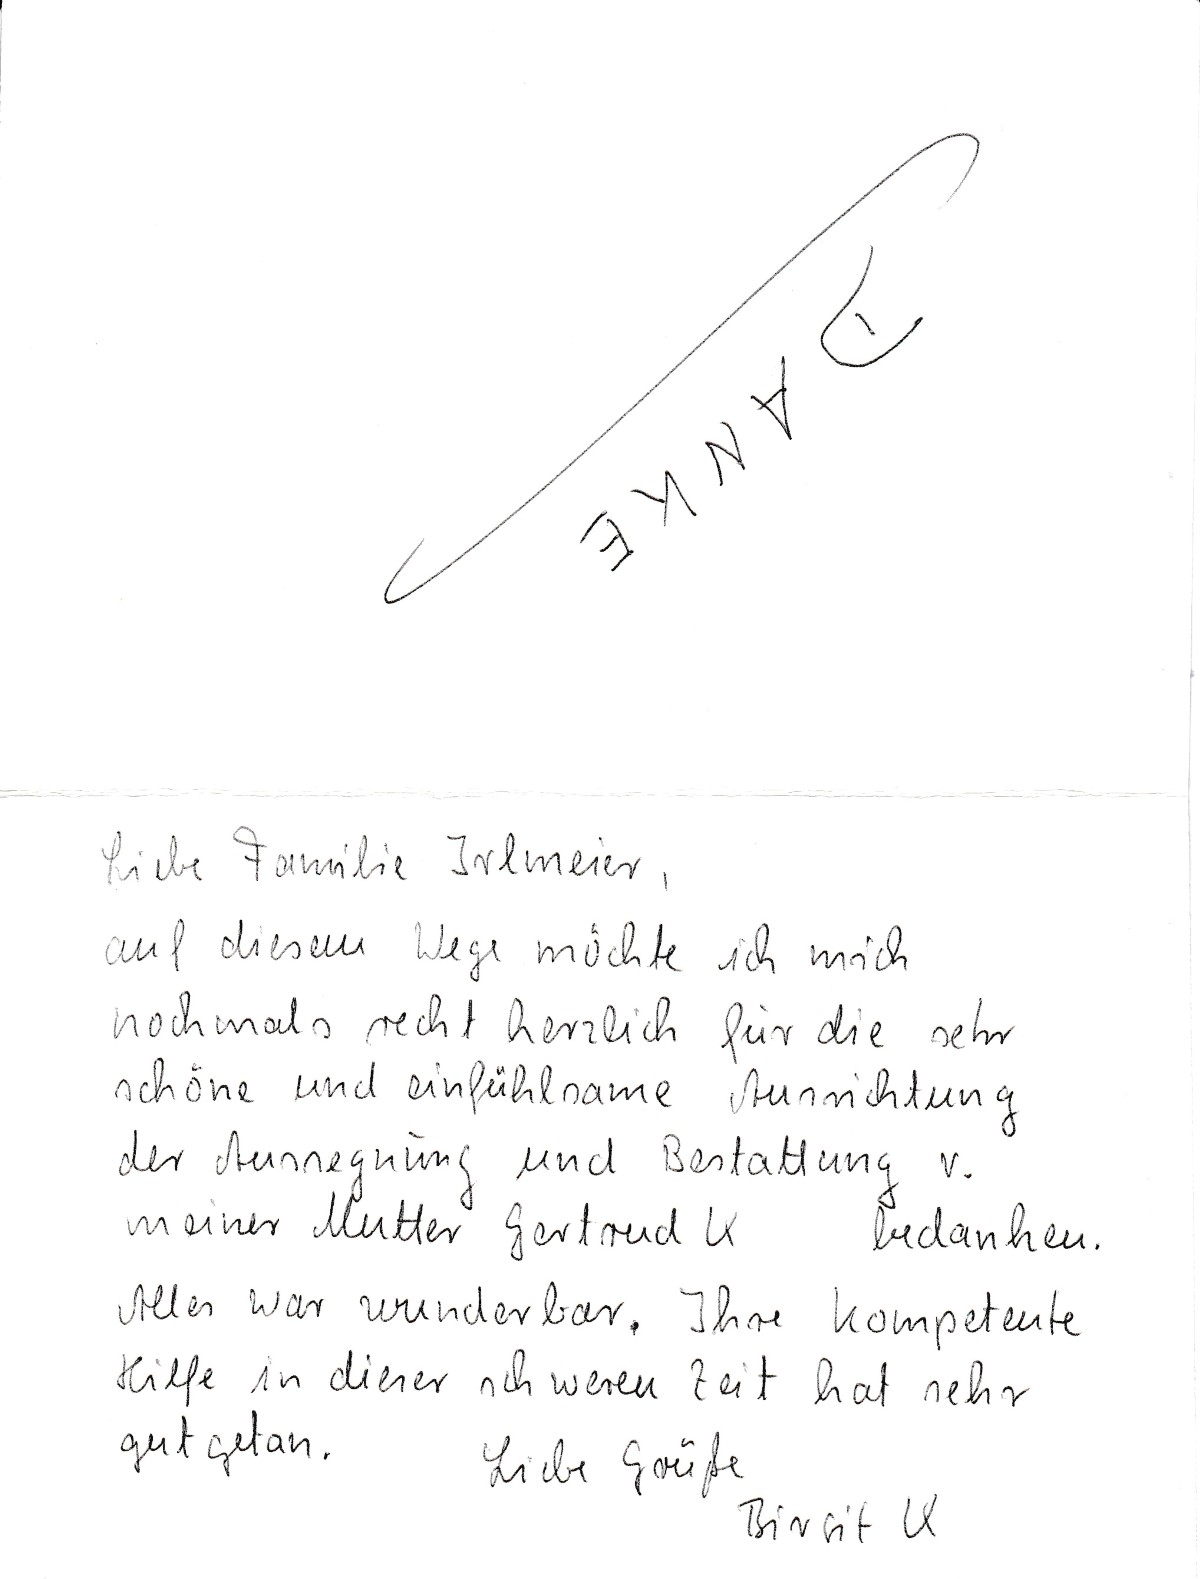 DANKE
Liebe Familie Irlmeier,
auf diesem Wege möchte ich mich
nochmals recht herzlich für die sehr
schöne und einfühlsame Ausrichtung
der Aussegnung und Bestattung v.
meiner Mutter Gertrud K bedanken.
Alles war wunderbar. Ihre kompetente
Hilfe in dieser schweren Zeit hat sehr
gut getan.
Liebe Grüße
Birgit K